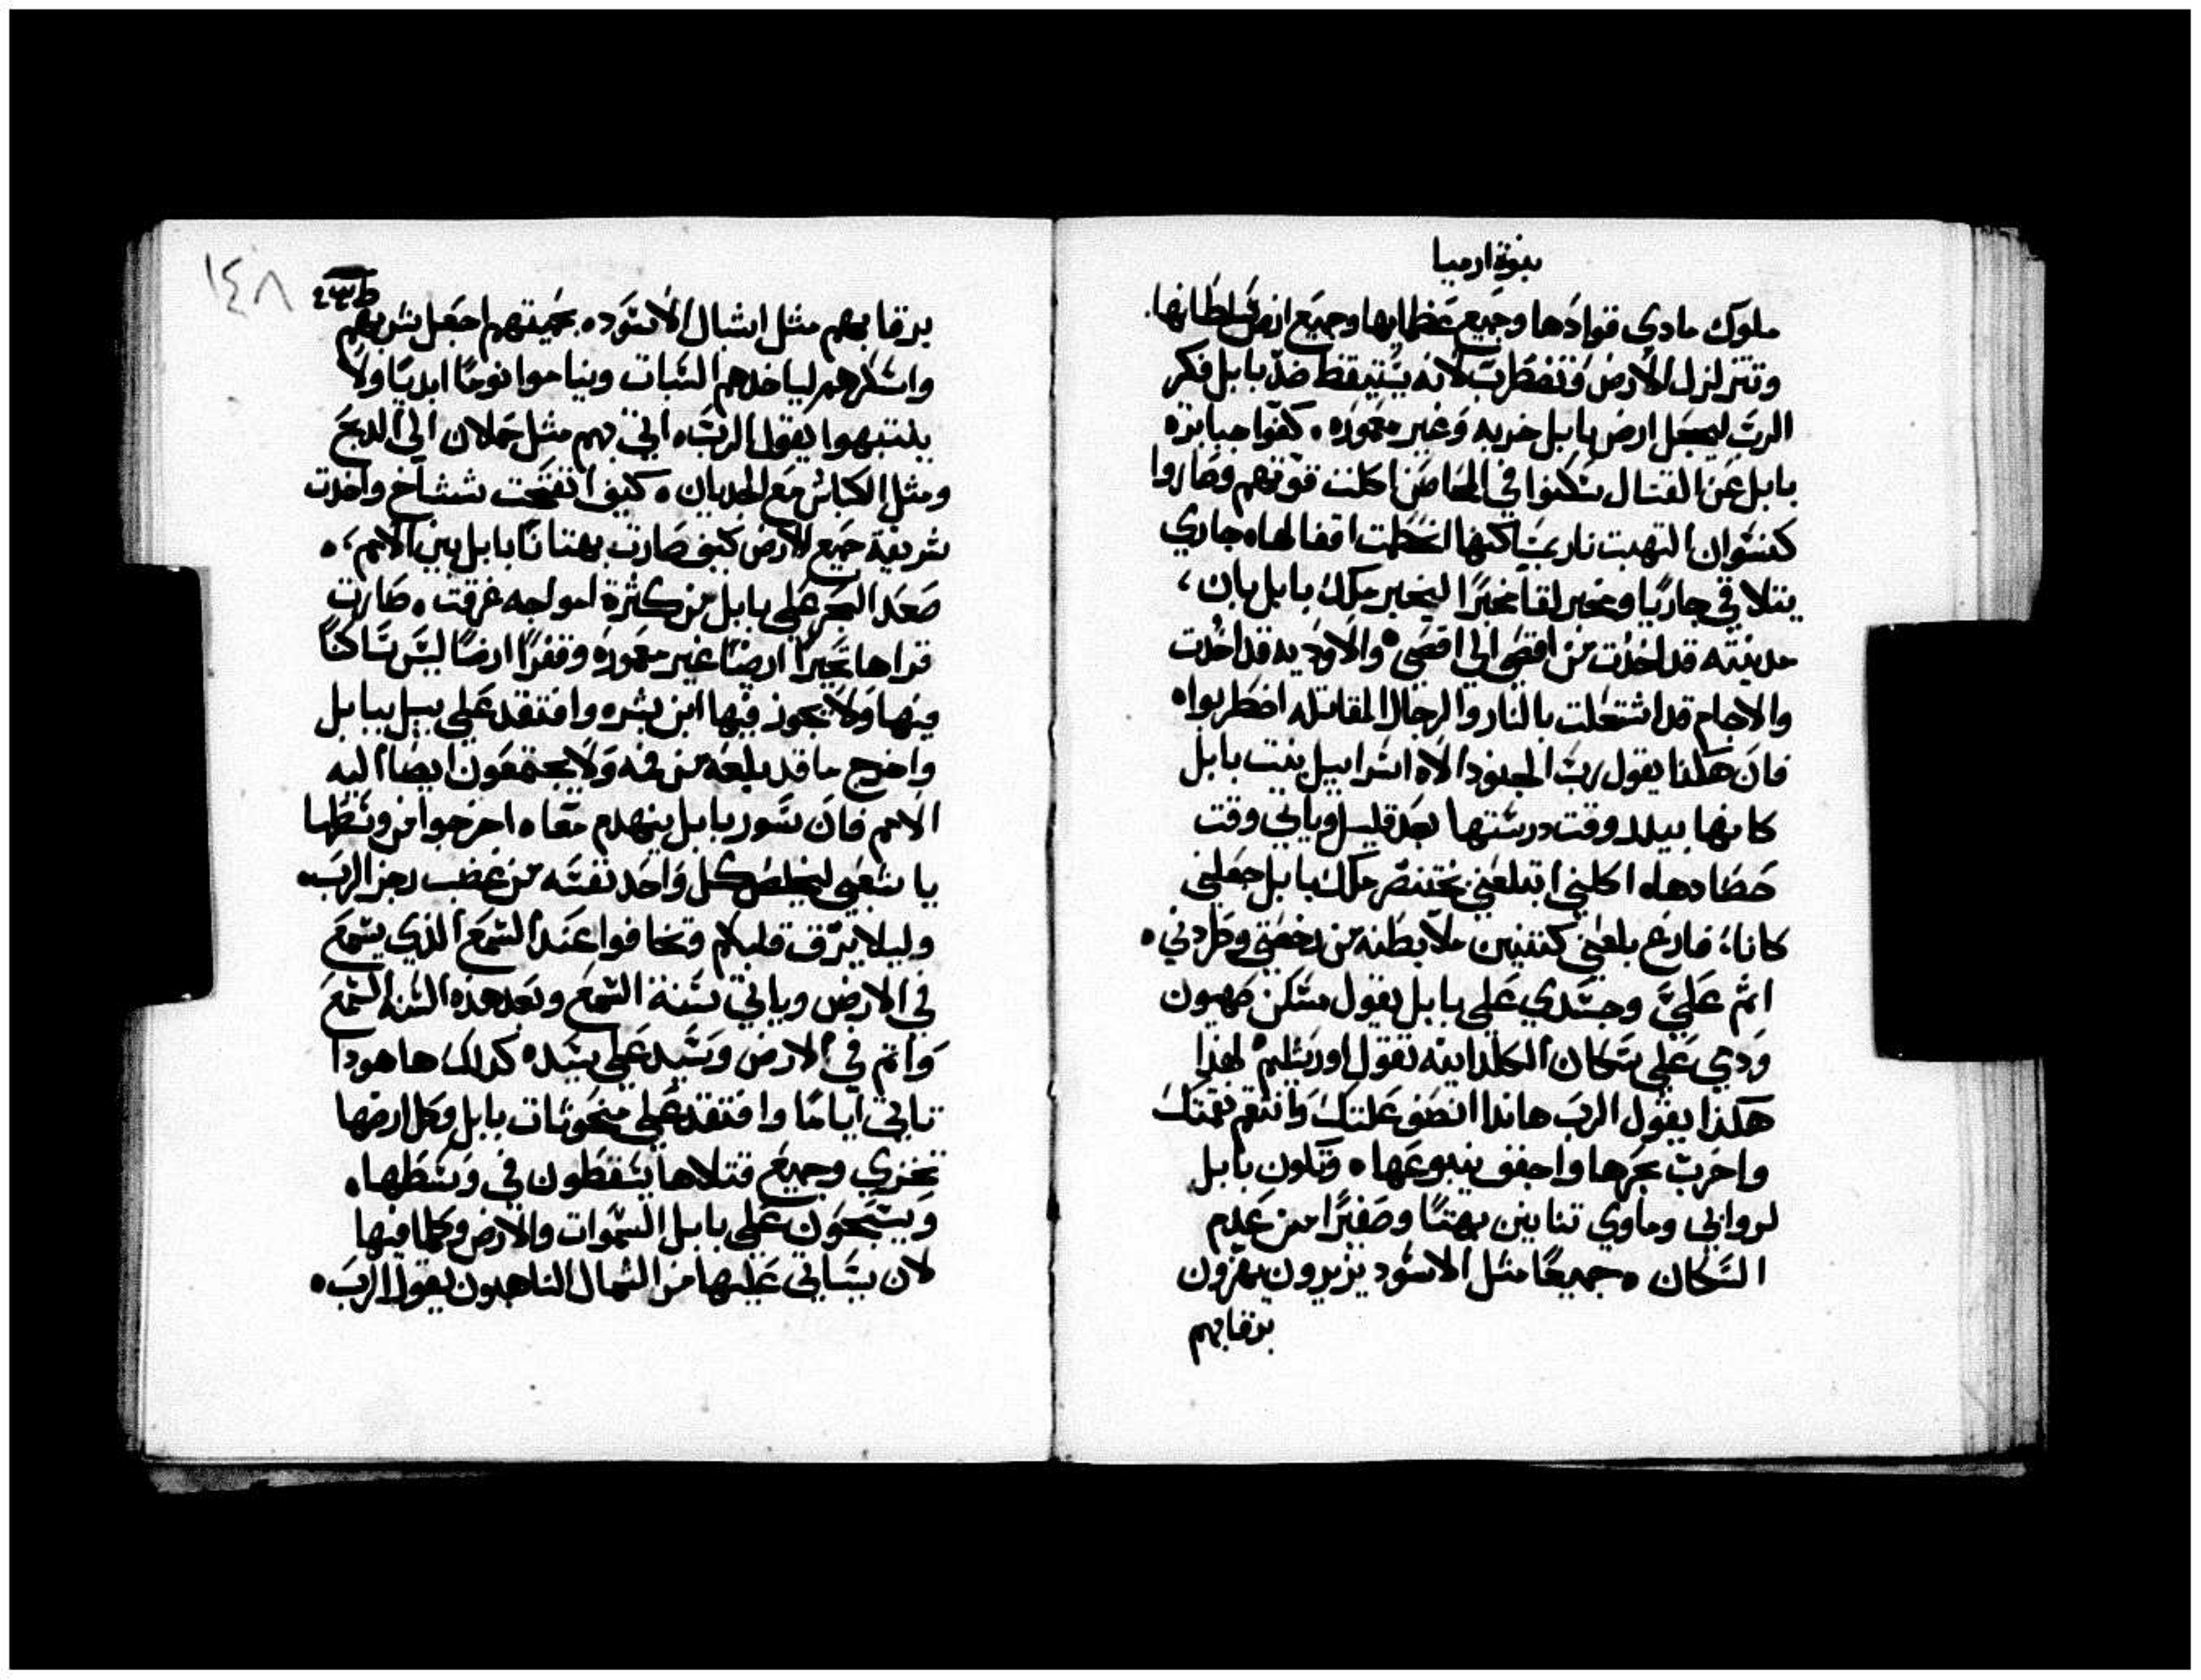 نبوة ارميا
ملوك مادي قوادها وجميع عظمايها وجميع ارض سلطانها.
وتتزلزل الارض وتضطرب لانه يستيقظ ضد بابل فكر
الرب ليجعل ارض بابل خربه وغير معموره. كفوا جبابرة
بابل عن القتال سكنوا في المحاصن اكلت قوتهم وصاروا
كنسوان التهبت نار بمساكنها انحطمت اقفالها ه جاري
يتلاقي جاريا ومخبر لقا مخبرا ليخبر ملك بابل بان،
مدينته قد اخذت من اقصي الي اقصي ه والاوديه قد اخذت
والاجام قد اشتعلت بالنار والرجال المقاتله اضطربوا ه
فان هكذا يقول رب الجنود الاه اسراييل بنت بابل
كانها بيدر وقت درستها بعد قليل وياتي وقت
حصادها ه اكلني ابتلعني بختنصر ملك بابل جعلني
كاناء فارغ بلعني كتنين ملا بطنه من رخصتي وطردني ه
اثم علي وجسدي علي بابل يقول مسكن صهيون
ودمي علي سكان الكلدانيه تقول اورشليم ه لهذا
هكذا يقول الرب هاندا انصف علتك وانتقم نقمتك
واخرب بحرها واجفف ينبوعها ه وتكون بابل
لروابي وماوي تنانين بهتا وصفيرا من عدم
السكان ه جميعا مثل الاسود يزيرون يهزون
برقابهم
١٤٨
برقابهم مثل اشبال الاسود ه بحميتهم اجعل شربهم
واسكرهم لياخدهم السبات ويناموا نوما ابديا ولا
ينتبهوا يقول الرب ه اتي بهم مثل حملان الي الدبح
ومثل الكباش مع الجديان ه كيف انفتحت ششاخ واخدت
شريفة جميع الارض كيف صارت بهتانا بابل بين الامم، ه
صعد البحر علي بابل من كثرة امواجه غرقت ه صارت
قراها تحيرا ارضا غير معموره وقفرا ارضا ليس ساكنا
فيها ولا يجوز فيها ابن بشر ه وافتقد علي بيل ببابل
واخرج ما قد بلعه من فمه ولا يجتمعون ايضا اليه
الامم فان سور بابل ينهدم معا ه اخرجوا من وسطها
يا شعبي ليخلص كل واحد نفسه من غضب رجز الرب ه
وليلا يرق قلبكم وتخافوا عند السمع الذي يسمع
في الارض وياتي بسنة السمع وبعد هذه السنه السمع
واثم في الارض وسيد علي سيد ه كدلك ها هودا
تاتي اياما وافتقد علي منحوتات بابل وكل ارضها
تخزي وجميع قتلاها يسقطون في وسطها ه
ويسبحون علي بابل السموات والارض وكلما فيها
لان سياتي عليها من الشمال الناهبون يقول الرب ه